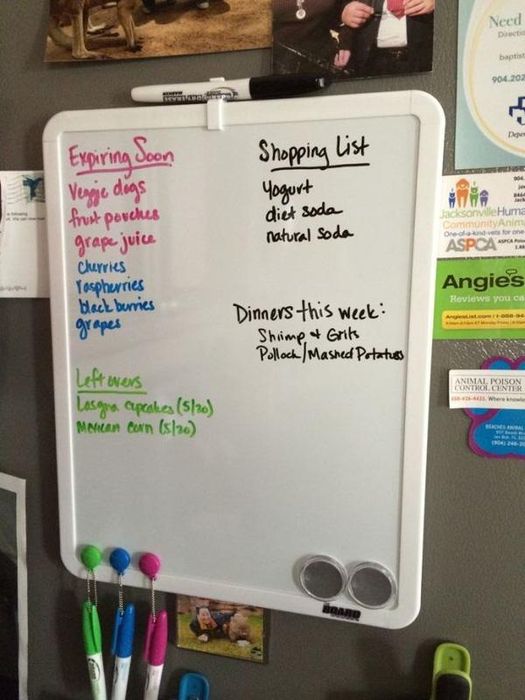 Expiring Soon
Veggie dogs
fruit pouches
grape juice
cherries
raspberries
blackberries
grapes
Leftovers
Lasagna cupcakes (5/20)
Mexican corn (5/20)
Shopping List
yogurt
diet soda
natural soda
Dinners this week:
Shrimp + Grits
Pollock/Mashed Potatoes
THE
BOARD
Need
Directi
baptist
904.202
Depen
904
Jacksonville Huma
Community Anim
One-of-a-kind vets for one
ASPCA
Angie's
Reviews you ca
AngiesList.com
ANIMAL POISON
CONTROL CENTER
Where knowle
BEACHES ANIMAL